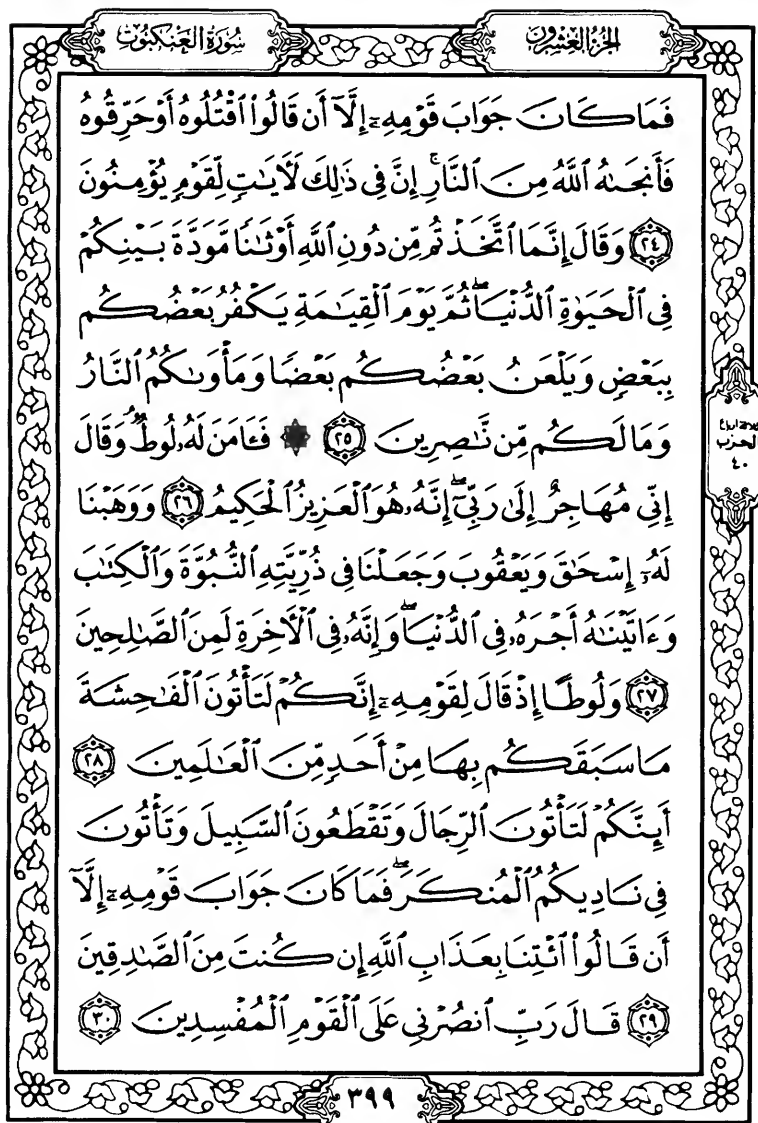 الجزء العشرون
سورة العنكبوت
فَمَا كَانَ جَوَابَ قَوْمِهِۦٓ إِلَّآ أَن قَالُوا۟ ٱقْتُلُوهُ أَوْ حَرِّقُوهُ
فَأَنجَىٰهُ ٱللَّهُ مِنَ ٱلنَّارِ ۚ إِنَّ فِى ذَٰلِكَ لَـَٔايَـٰتٍ لِّقَوْمٍ يُؤْمِنُونَ
٢٤ وَقَالَ إِنَّمَا ٱتَّخَذْتُم مِّن دُونِ ٱللَّهِ أَوْثَـٰنًا مَّوَدَّةَ بَيْنِكُمْ
فِى ٱلْحَيَوٰةِ ٱلدُّنْيَا ۖ ثُمَّ يَوْمَ ٱلْقِيَـٰمَةِ يَكْفُرُ بَعْضُكُم
بِبَعْضٍ وَيَلْعَنُ بَعْضُكُم بَعْضًا وَمَأْوَىٰكُمُ ٱلنَّارُ
وَمَا لَكُم مِّن نَّـٰصِرِينَ ٢٥ ۞ فَـَٔامَنَ لَهُۥ لُوطٌ ۘ وَقَالَ
إِنِّى مُهَاجِرٌ إِلَىٰ رَبِّىٓ ۖ إِنَّهُۥ هُوَ ٱلْعَزِيزُ ٱلْحَكِيمُ ٢٦ وَوَهَبْنَا
لَهُۥٓ إِسْحَـٰقَ وَيَعْقُوبَ وَجَعَلْنَا فِى ذُرِّيَّتِهِ ٱلنُّبُوَّةَ وَٱلْكِتَـٰبَ
وَءَاتَيْنَـٰهُ أَجْرَهُۥ فِى ٱلدُّنْيَا ۖ وَإِنَّهُۥ فِى ٱلْـَٔاخِرَةِ لَمِنَ ٱلصَّـٰلِحِينَ
٢٧ وَلُوطًا إِذْ قَالَ لِقَوْمِهِۦٓ إِنَّكُمْ لَتَأْتُونَ ٱلْفَـٰحِشَةَ
مَا سَبَقَكُم بِهَا مِنْ أَحَدٍ مِّنَ ٱلْعَـٰلَمِينَ ٢٨
أَئِنَّكُمْ لَتَأْتُونَ ٱلرِّجَالَ وَتَقْطَعُونَ ٱلسَّبِيلَ وَتَأْتُونَ
فِى نَادِيكُمُ ٱلْمُنكَرَ ۖ فَمَا كَانَ جَوَابَ قَوْمِهِۦٓ إِلَّآ
أَن قَالُوا۟ ٱئْتِنَا بِعَذَابِ ٱللَّهِ إِن كُنتَ مِنَ ٱلصَّـٰدِقِينَ
٢٩ قَالَ رَبِّ ٱنصُرْنِى عَلَى ٱلْقَوْمِ ٱلْمُفْسِدِينَ ٣٠
الحزب
٤٠
٣٩٩